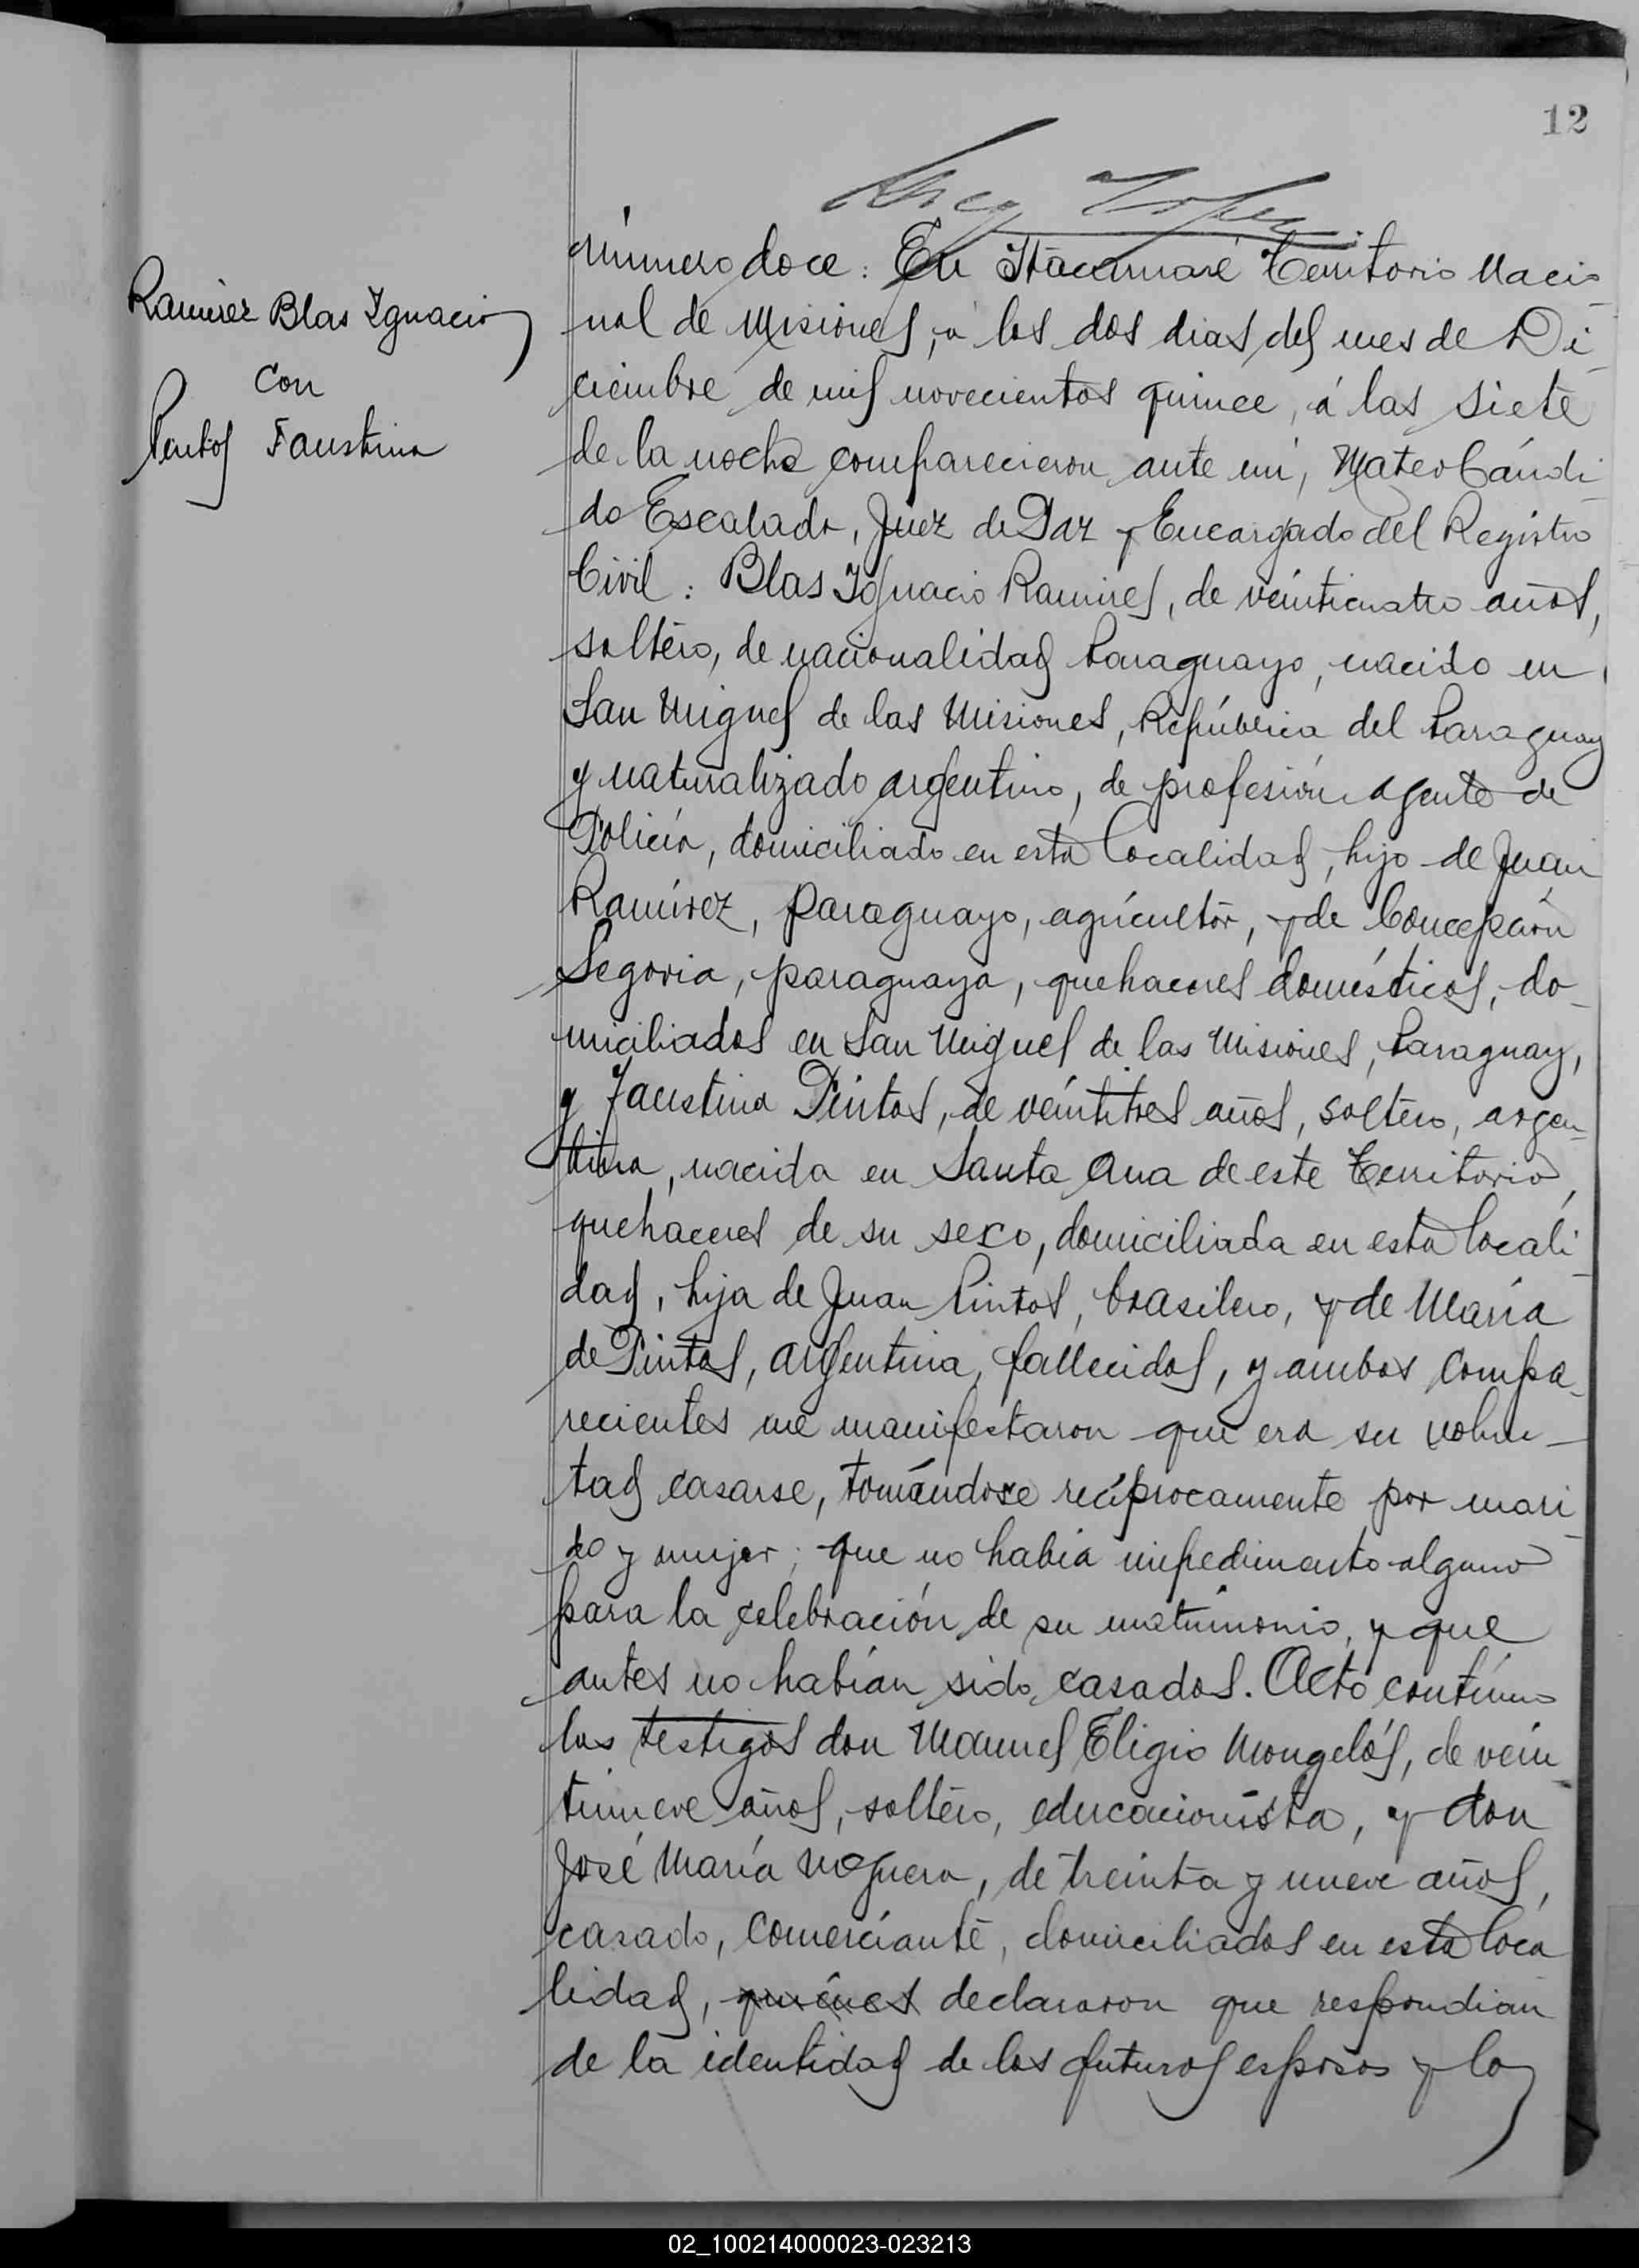 12
Lopez
Ramirez Blas Ignacio
con
Pintos Faustina
número doce: En Itacuararé Territorio Nacio
nal de Misiones, á los dos dias del mes de Di
ciembre de mil novecientos quince, á las siete
de la noche comparecieron ante mi, Mateo Cándi
do Escalada, Juez de Paz y Encargado del Registro
Civil: Blas Ignacio Ramires, de veinticuatro años,
soltero, de nacionalidad Paraguayo, nacido en
San Miguel de las Misiones, República del Paraguay
y naturalizado argentino, de profesión agente de
Policía, domiciliado en esta localidad, hijo de Juan
Ramírez, paraguayo, agricultor, y de Concepción
Segovia, paraguaya, quehaceres domésticos, do
miciliados en San Miguel de las Misiones, Paraguay,
y Faustina Pintos, de veintitres años, soltera, argen
tina, nacida en Santa Ana de este Territorio,
quehaceres de su sexo, domiciliada en esta locali
dad, hija de Juan Pintos, brasilero, y de María
de Pintos, argentina, fallecidos, y ambos compa
recientes me manifestaron que era su volun
tad casarse, tomándose recíprocamente por mari
do y mujer; que no había impedimento alguno
para la celebración de su matrimonio, y que
antes no habían sido casados. Acto contínuo
los testigos don Manuel Eligio Mongelós, de vein
tinueve años, soltero, educacionista, y don
José María Noguera, de treinta y nueve años,
casado, comerciante, domiciliados en esta loca
lidad, quienes declararon que respondian
de la identidad de los futuros esposos y los
02_100214000023-023213